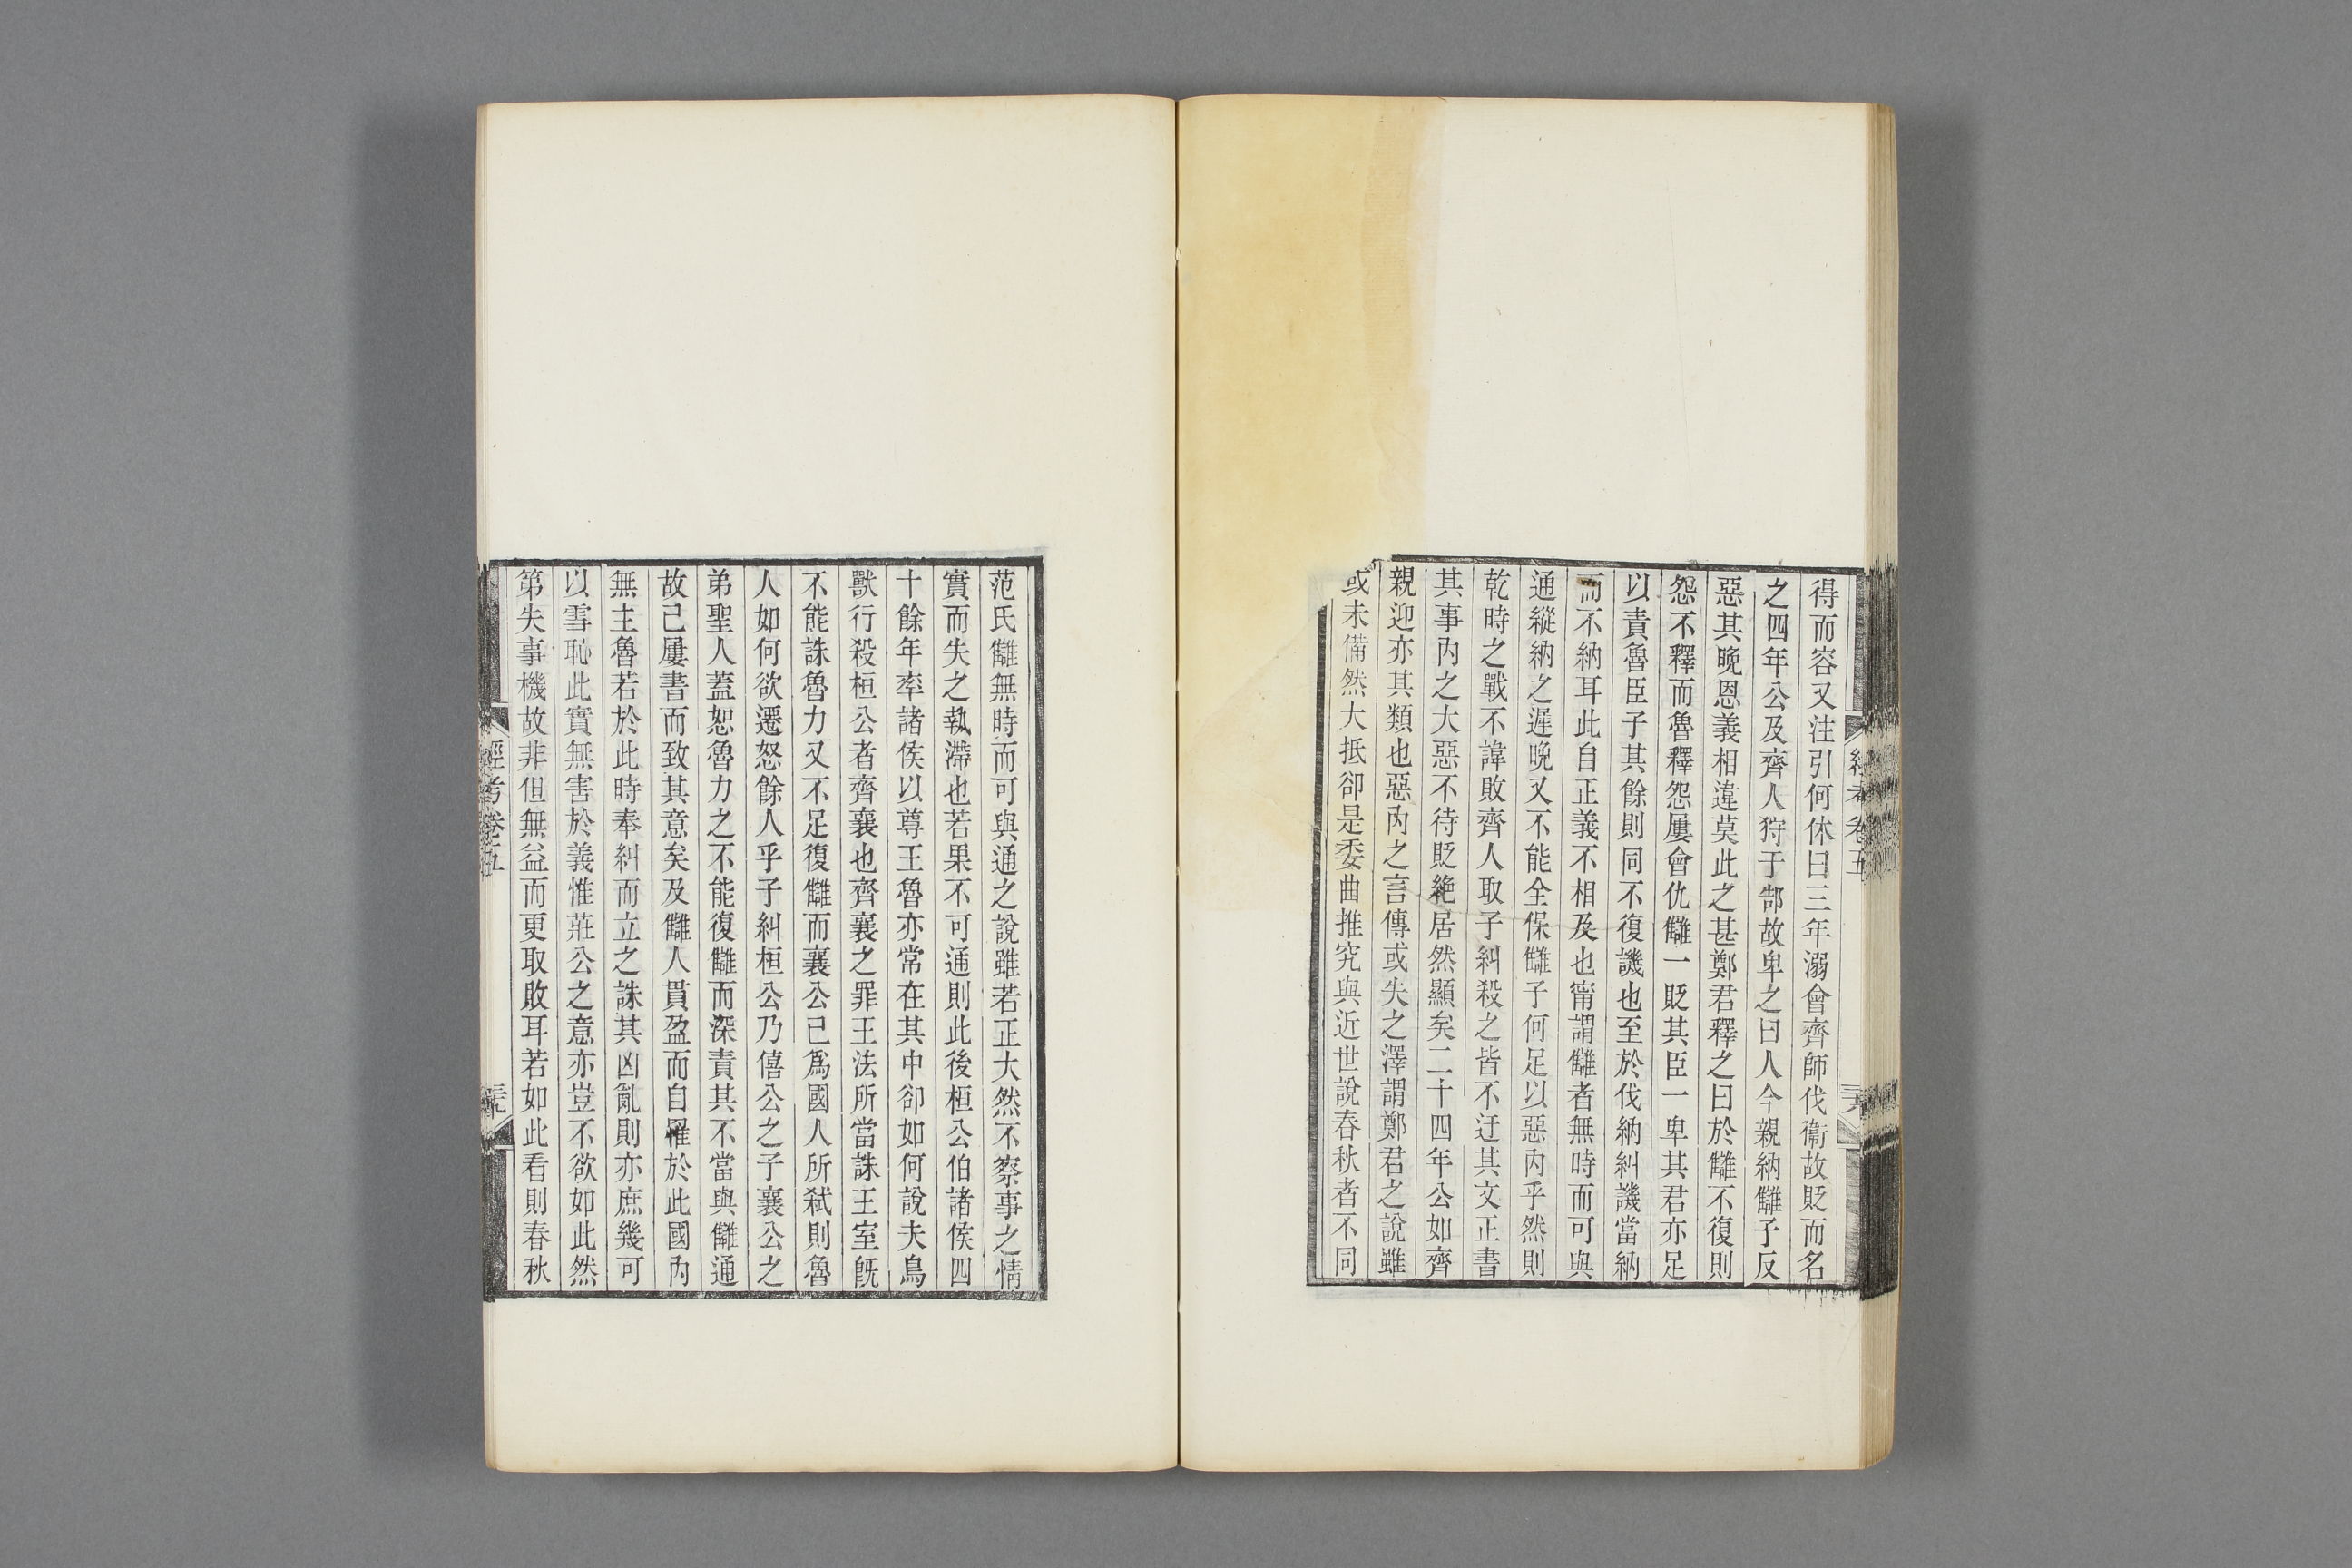 得而容又注引何休曰三年溺會齊師伐衞故貶而名
之四年公及齊人狩于郜故卑之曰人今親納讎子反
惡其晚恩義相違莫此之甚鄭君釋之曰於讎不復則
怨不釋而魯釋怨屢會仇讎一貶其臣一卑其君亦足
以責魯臣子其餘則同不復譏也至於伐納糾譏當納
而不納耳此自正義不相及也甯謂讎者無時而可與
通縱納之遲晚又不能全保讎子何足以惡內乎然則
乾時之戰不諱敗齊人取子糾殺之皆不迂其文正書
其事內之大惡不待貶絶居然顯矣二十四年公如齊
親迎亦其類也惡內之言傳或失之澤謂鄭君之說雖
或未備然大抵卻是委曲推究與近世說春秋者不同
經考卷五
范氏讎無時而可與通之說雖若正大然不察事之情
實而失之執滯也若果不可通則此後桓公伯諸侯四
十餘年率諸侯以尊王魯亦常在其中卻如何說夫鳥
獸行殺桓公者齊襄也齊襄之罪王法所當誅王室旣
不能誅魯力又不足復讎而襄公已爲國人所弒則魯
人如何欲遷怒餘人乎子糾桓公乃僖公之子襄公之
弟聖人蓋恕魯力之不能復讎而深責其不當與讎通
故已屢書而致其意矣及讎人貫盈而自罹於此國內
無主魯若於此時奉糾而立之誅其凶亂則亦庶幾可
以雪恥此實無害於義惟莊公之意亦豈不欲如此然
第失事機故非但無益而更取敗耳若如此看則春秋
經考卷五